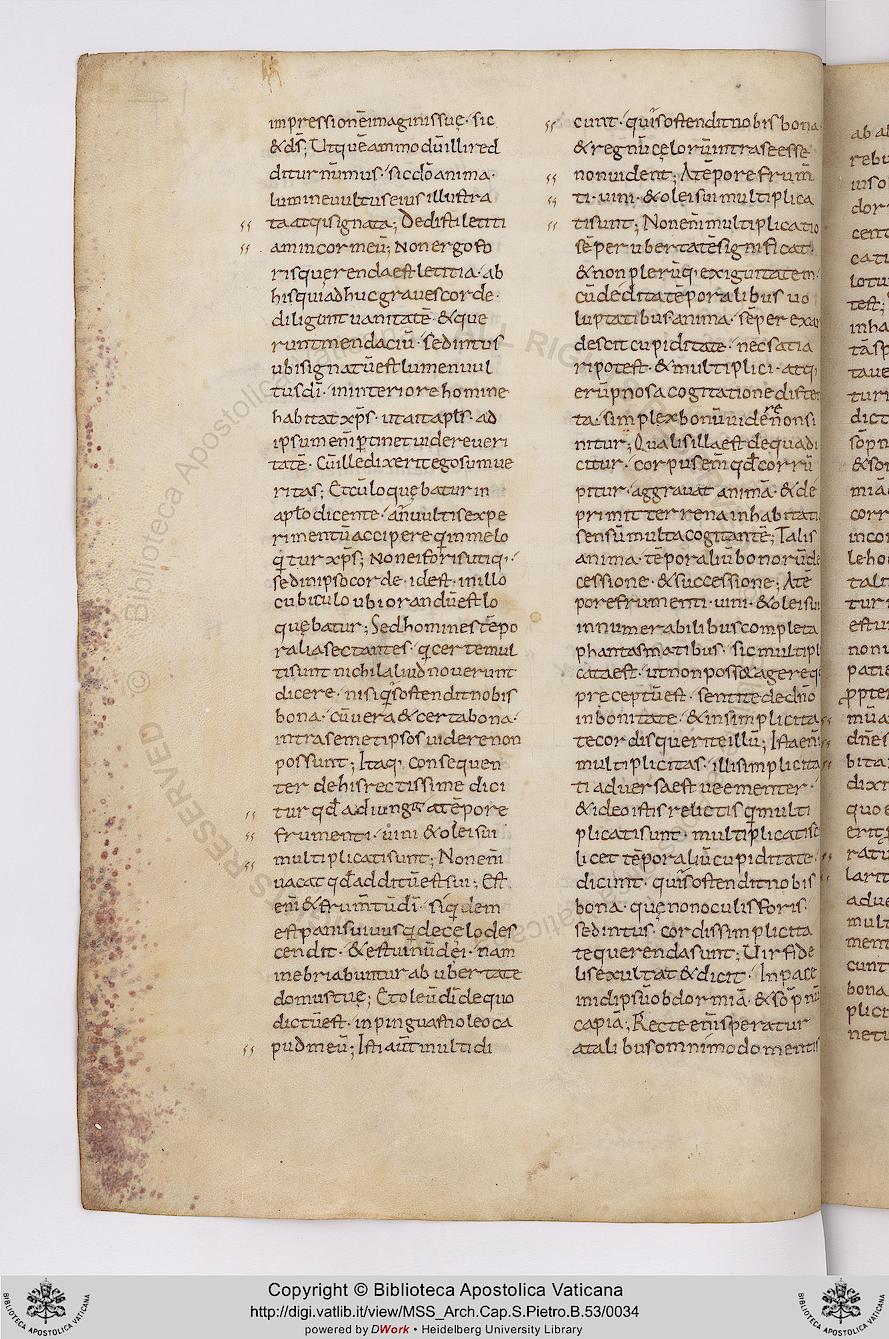 impressionē imaginis suę · sic
& dš; Utquēammodū illi red
ditur nūmus · sic dō anima ·
lumine vultus eius illustra
ta atq; signata; Dedisti letiti
am in cor meū; Non ergo fo
ris querenda est letitia · ab
his qui adhuc graves corde ·
diligunt vanitatē · & que
runt mendaciū · sed intus
ubi signatū est lumen vul
tus dī · in interiore homine
habitat xp̄s · ut ait apls̄ · ad
ipsum enī ptinet videre veri
tatē · Cū ille dixerit ego sum ve
ritas; Et cū loquebatur in
aplo dicente · an̄ vultis expe
rimentū accipere qi in me lo
qitur xp̄s; Non ei foris utiq; ·
sed in ipso corde · id est · in illo
cubiculo ubi orandū est lo
quębatur; Sed homines tēpo
ralia sectantes · qi certe mul
ti sunt nichil aliud noverunt
dicere · nisi qis ostendit nobis
bona · cū vera & certa bona ·
intra semetipsos videre non
possunt; Itaq; consequen
ter de his rectissime dici
tur qd̄ adiungit a tēpore
frumenti · vini & olei sui
multiplicati sunt; Non enī
vacat qd̄ additū est sui; Est
enī & frumtū dī · siqidem
est panis vivus qi de cęlo des
cendit · & est vinū dei · nam
inebriabuntur ab ubertate
domus tuę; Et oleū dī de quo
dictū est · inpinguasti oleo ca
pud meū; Isti aūt multi di
cunt · quis ostendit nobis bona
& regnū cęlorū intra se esse
non vident; A tēpore frum̄
ti · vini · & olei sui multiplica
ti sunt; Non enī multiplicatio
sēper ubertatē significat ·
& non plerūq; exiguitatem ·
cū dedita tēporalibus vo
luptatibus anima · sēper exar
descit cupiditate · nec satia
ri potest · & multiplici · atq;
erūpnosa cogitatione disten
ta · simplex bonū videre non si
nitur; Qualis illa est de qua di
citur · corpus enī qd̄ corrū
pitur · aggravat animā · & de
primit terrena inhabitatio
sensū multa cogitantē; Talis
anima · tēporaliū bonorū de
cessione · & successione; A tē
pore frumenti · vini · & olei sui
innumerabilibus completa
phantasmatibus · sic multipli
cata est · ut non poss& agere qd
preceptū est · sentite de dn̄o
in bonitate · & in simplicita
te cordis querite illū; Ista enī
multiplicitas · illi simplicita
ti adversa est veementer ·
& ideo istis relictis qi multi
plicati sunt · multiplicatis
licet tēporaliū cupiditate ·
dicunt · quis ostendit nobis
bona · quę non oculis foris ·
sed intus · cordis simplicita
te querenda sunt; Vir fide
lis exultat & dicit · In pace
in idipsū obdormiā · & sōpnū
capiā; Recte enī speratur
a talibus omnimodo mentis
Copyright © Biblioteca Apostolica Vaticana
http://digi.vatlib.it/view/MSS_Arch.Cap.S.Pietro.B.53/0034
powered by DWork • Heidelberg University Library